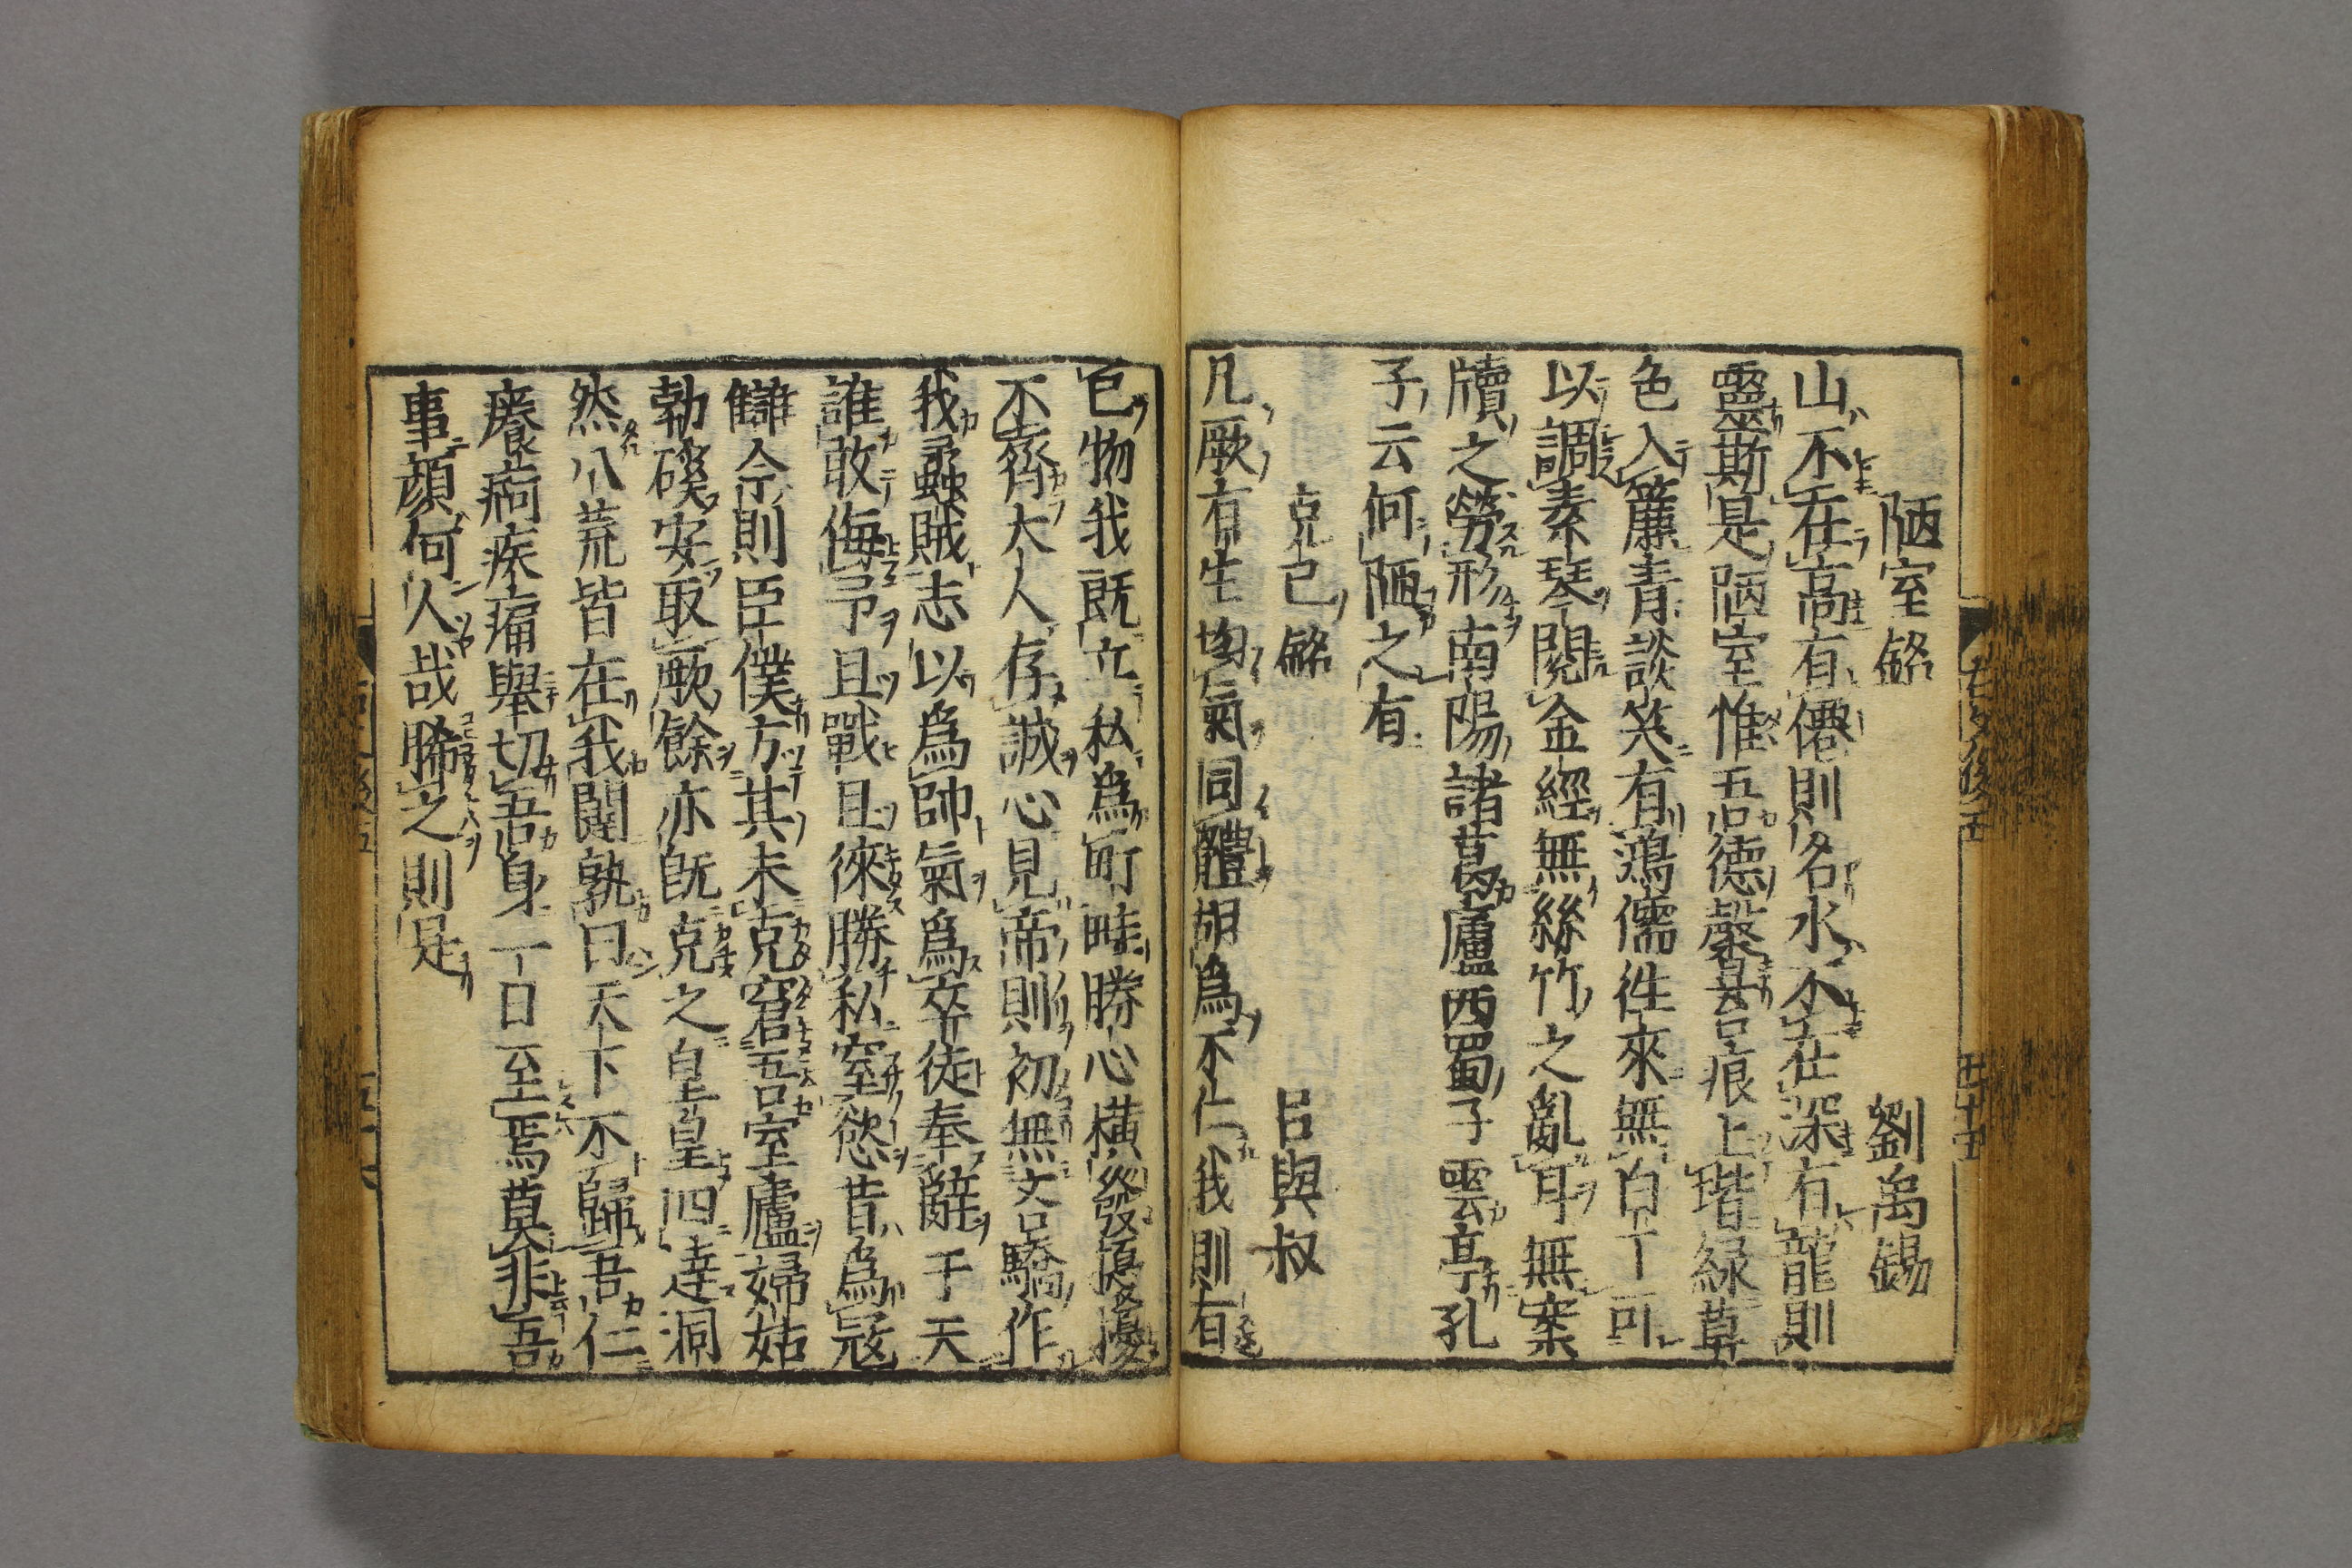 陋室銘 劉禹錫
山不在高有僊則名水不在深有龍則
靈斯是陋室惟吾德馨苔痕上堦緑草
色入簾青談笑有鴻儒徃來無白丁可
以調素琴閱金經無絲竹之亂耳無案
牘之勞形南陽諸葛廬西蜀子雲亭孔
子云何陋之有
克己銘 呂與叔
凡厥有生均氣同體胡爲不仁我則有
己物我既立私爲町畦勝心橫發擾擾
不齊大人存誠心見帝則初無吝驕作
我蟊賊志以爲帥氣爲卒徒奉辭于天
誰敢侮予且戰且徠勝私窒慾昔爲冦
讎今則臣僕方其未克窘吾室廬婦姑
勃磎安取厥餘亦既克之皇皇四達洞
然八荒皆在我闥孰曰天下不歸吾仁
癢疴疾痛舉切吾身一日至焉莫非吾
事顔何人哉晞之則是